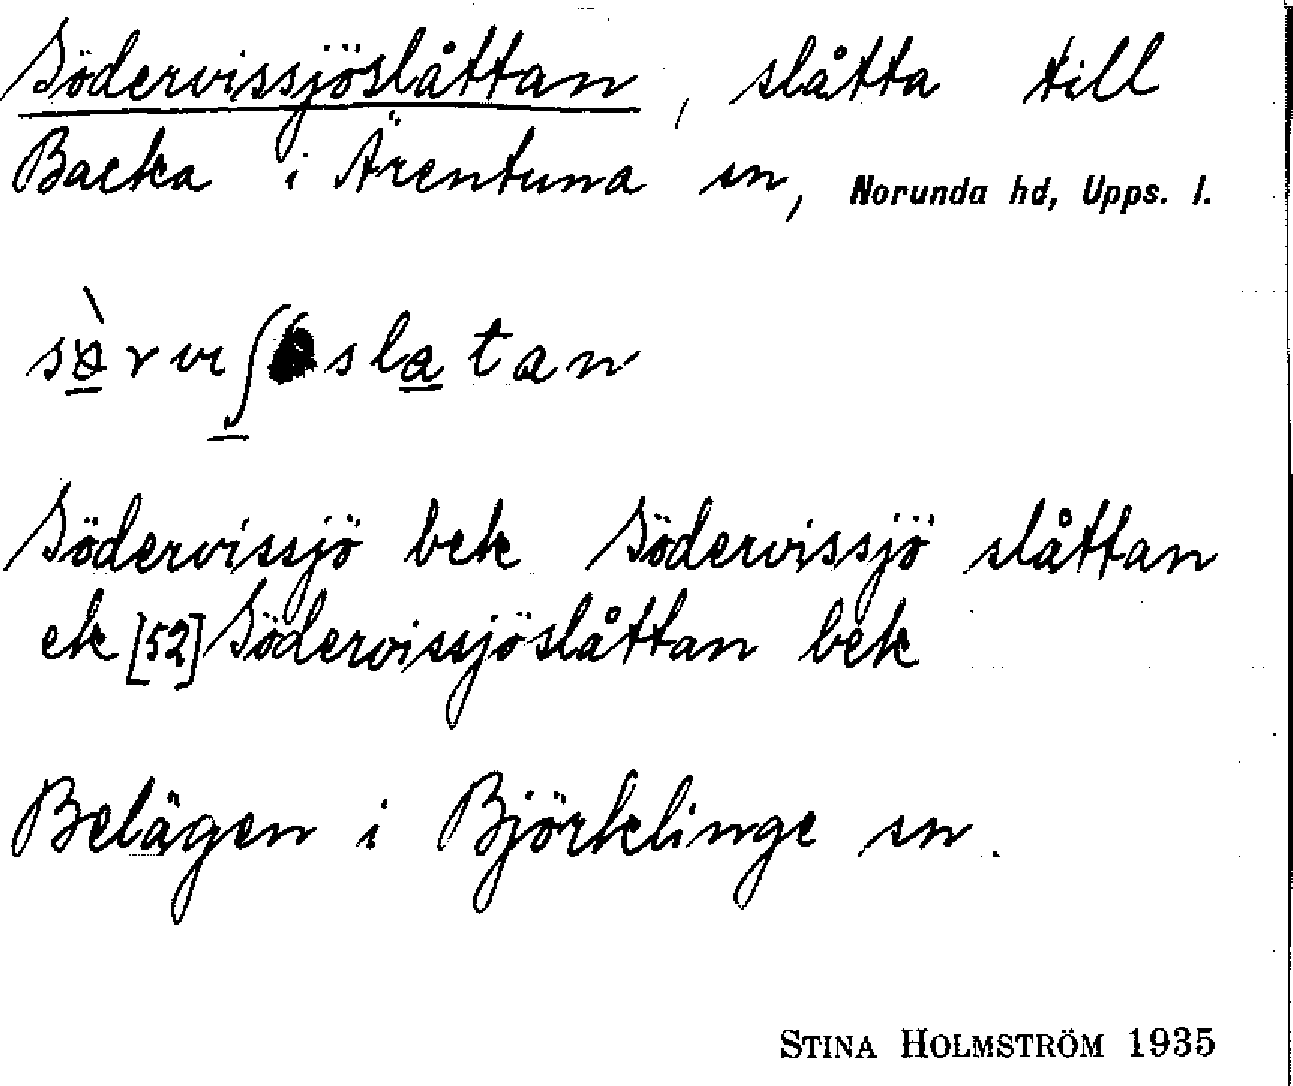 Södervissjöslåttan, slåtta till
Backa i Ärentuna sn, Norunda hd, Upps. l.
Södervissjö bek Södervissjö slåttan
ek [52] Södervissjöslåttan bek
Belägen i Björklinge sn.
STINA HOLMSTRÖM 1935